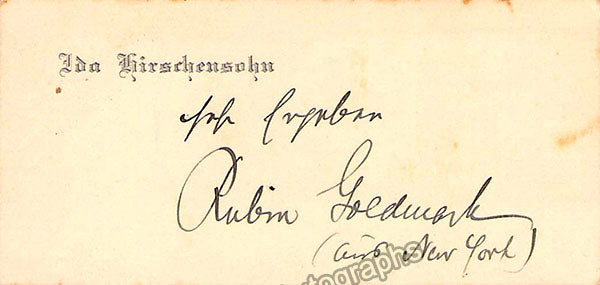 Ida Hirschensohn
sehr Ergeben
Rubin Goldmark
(aus New York)
tographs